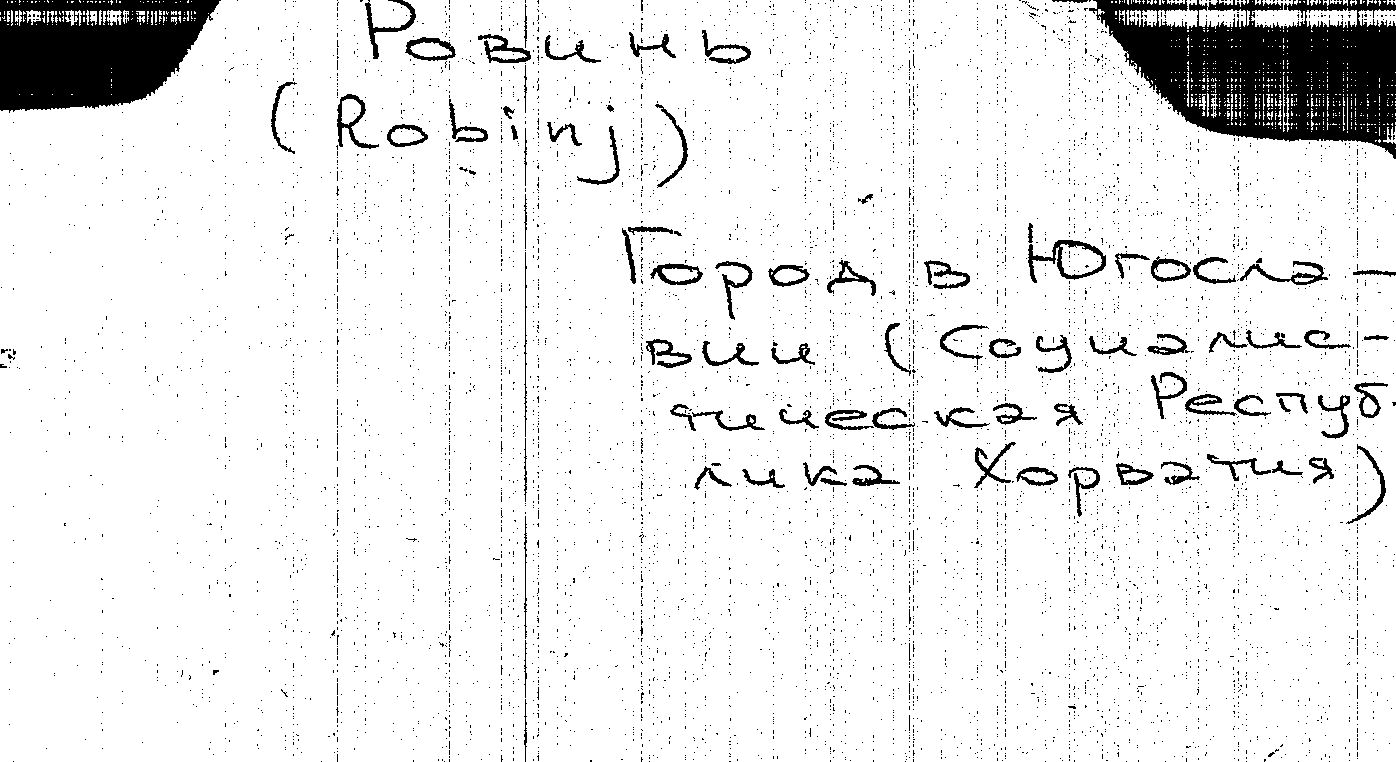 Ровинь
(Robinj)
Город в Югосла-
вии (Социалис-
тическая Респуб-
лика Хорватия)